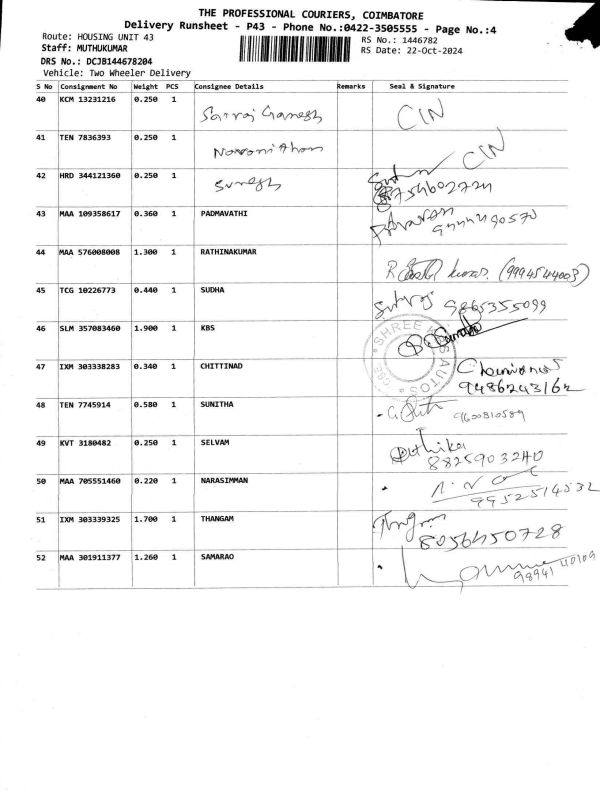 THE PROFESSIONAL COURIERS, COIMBATORE
Delivery Runsheet - P43 - Phone No.:0422-3505555 - Page No.:4
Route: HOUSING UNIT 43 RS No.: 1446782
Staff: MUTHUKUMAR RS Date: 22-Oct-2024
DRS No.: DCJB144678204
Vehicle: Two Wheeler Delivery
S No Consignment No Weight PCS Consignee Details Remarks Seal & Signature
40 KCM 13231216 0.250 1 Ganesh CIN
41 TEN 7836393 0.250 1 CIN
42 HRD 344121360 0.250 1 Suresh
43 MAA 109358617 0.360 1 PADMAVATHI
44 MAA 576008008 1.300 1 RATHINAKUMAR kumar. (9994544003)
45 TCG 10226773 0.440 1 SUDHA 9865355099
46 SLM 357083460 1.900 1 KBS SHREE AUTOS CBE
47 IXM 303338283 0.340 1 CHITTINAD 9486243162
48 TEN 7745914 0.580 1 SUNITHA 9600810589
49 KVT 3180482 0.250 1 SELVAM
50 MAA 705551460 0.220 1 NARASIMMAN 9952514532
51 IXM 303339325 1.700 1 THANGAM 8056450728
52 MAA 301911377 1.260 1 SAMARAO 98941 40109